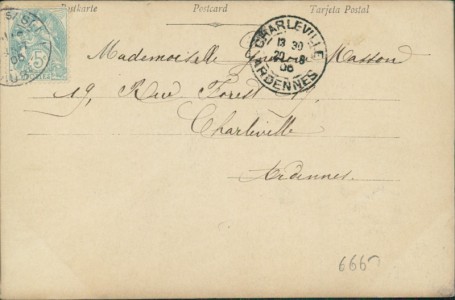 Postkarte Postcard Tarjeta Postal
CHARLEVILLE
13 30
ARDENNES
Mademoiselle Masson
19, Rue Forest 19,
Charleville
Ardennes.
5
6667